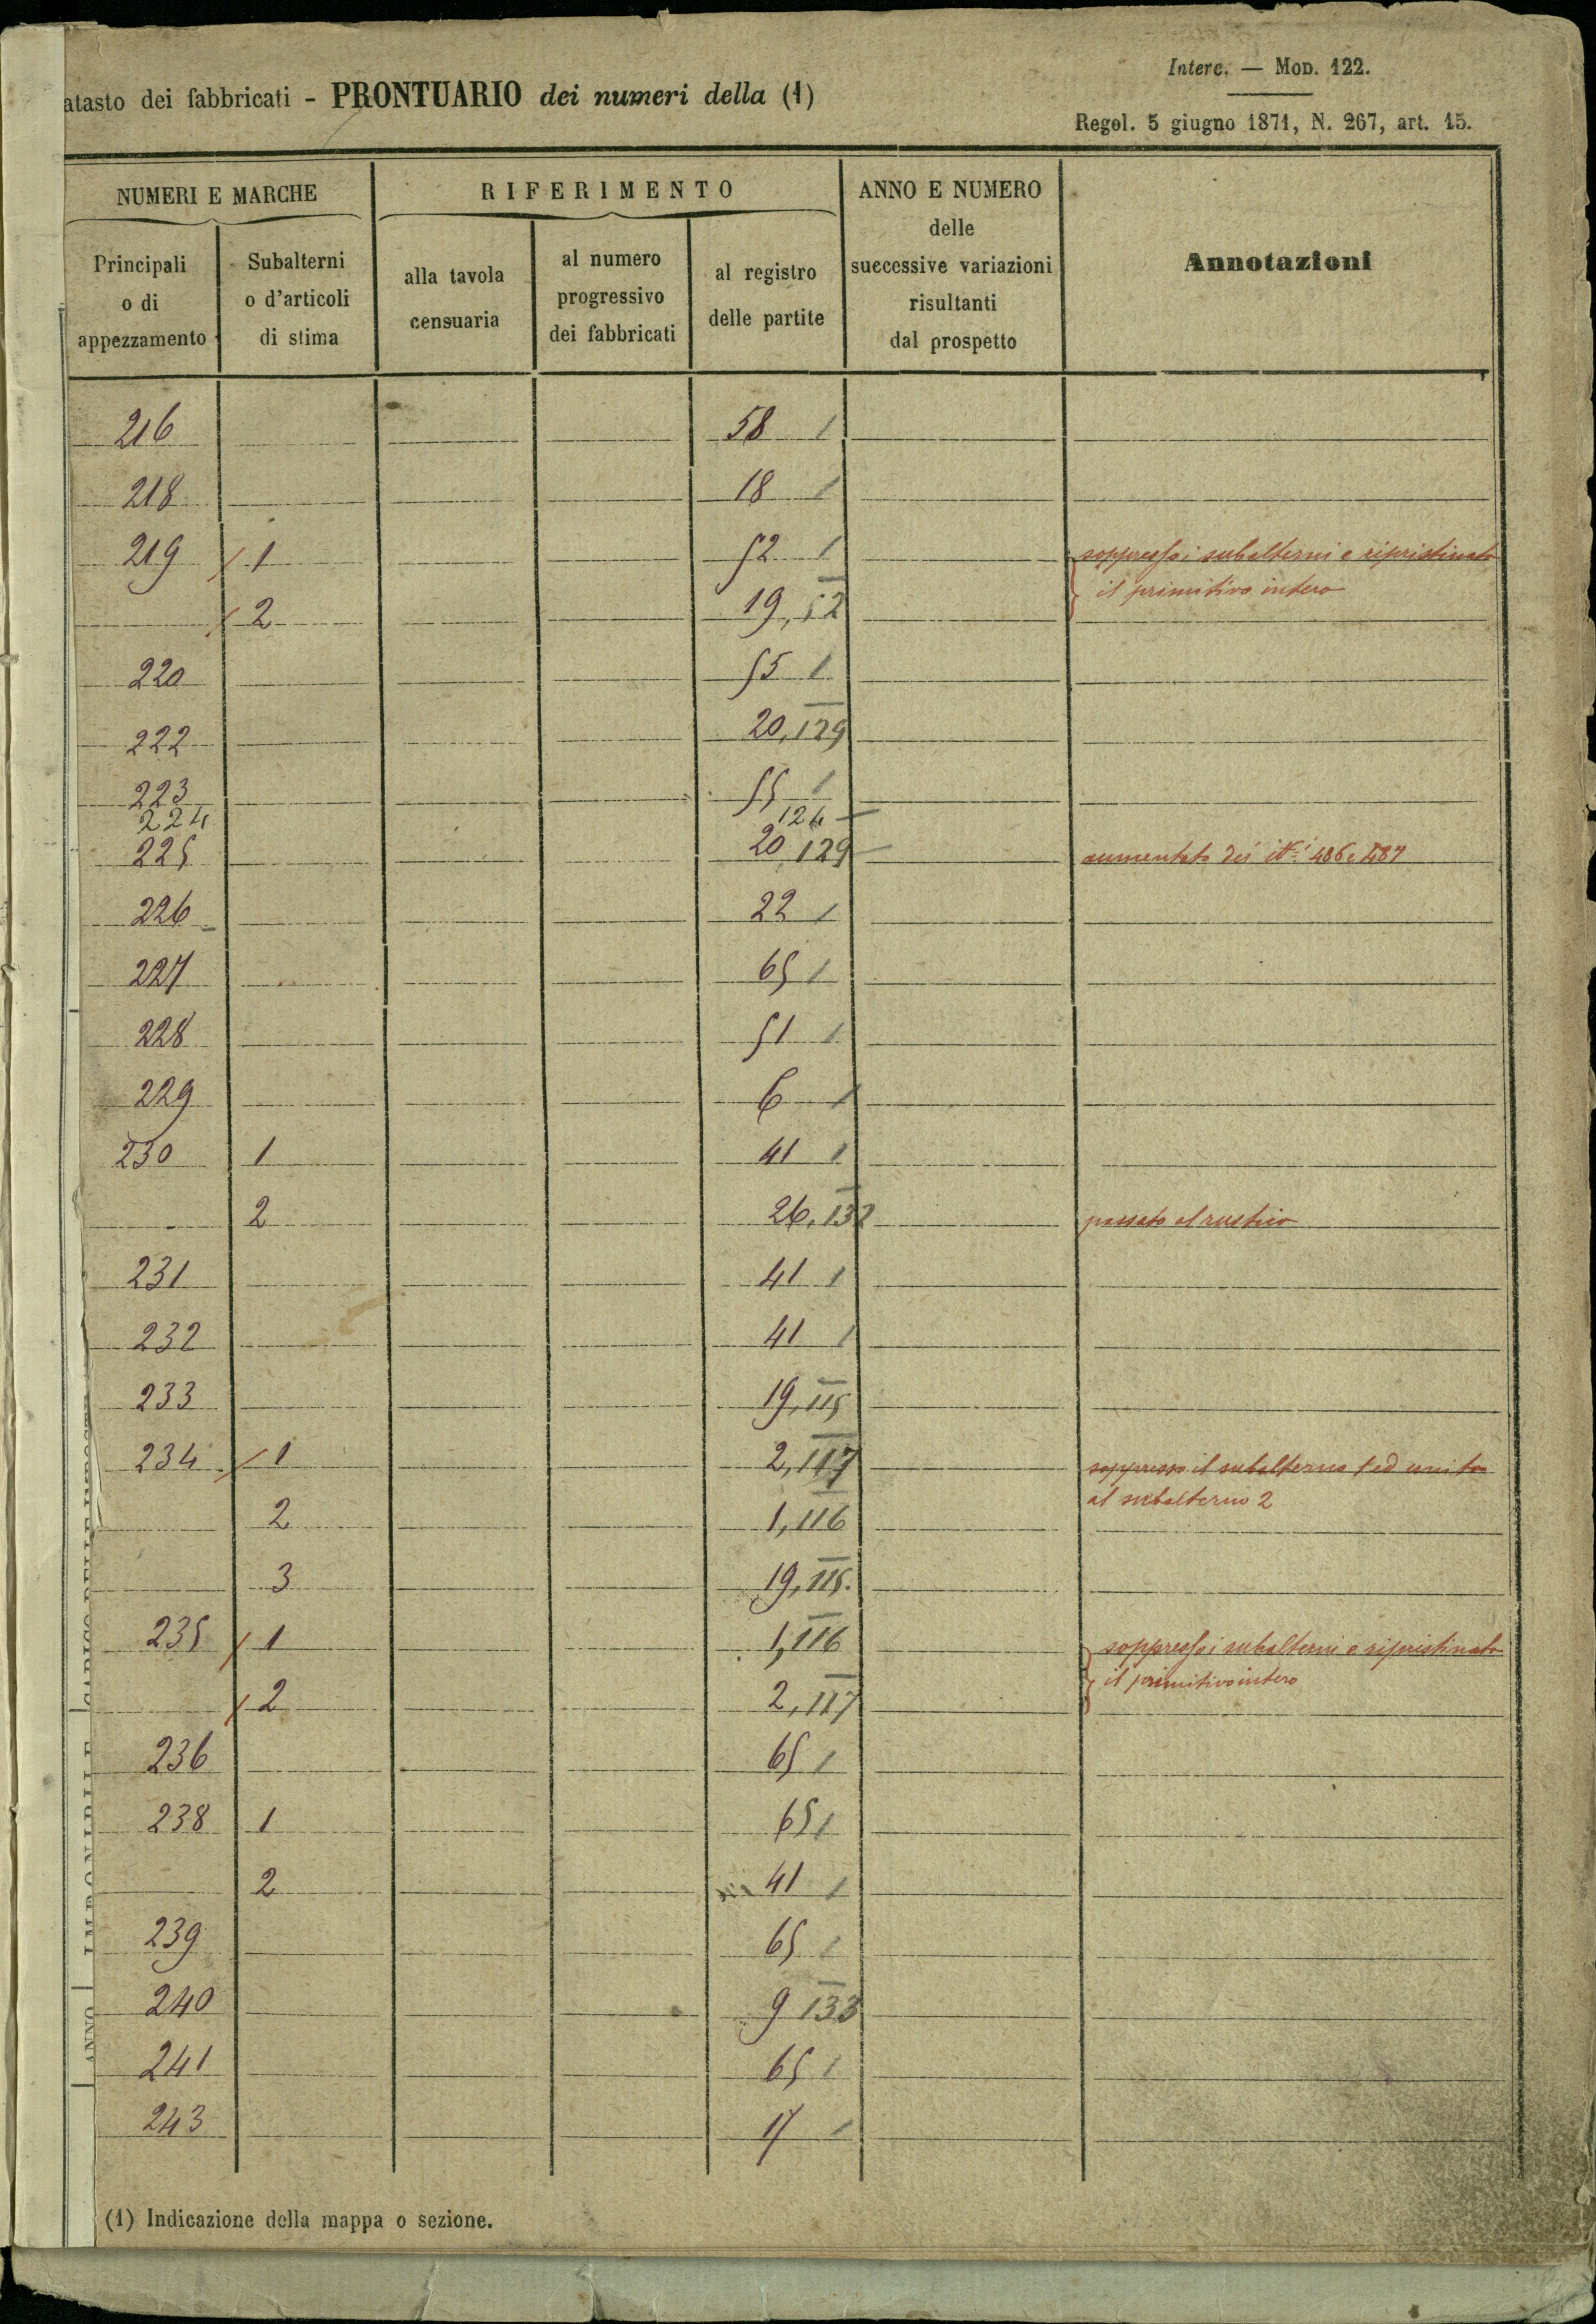 Interc. — Mod. 122.
atasto dei fabbricati - PRONTUARIO dei numeri della (1)
Regol. 5 giugno 1871, N. 267, art. 15.
NUMERI E MARCHE
RIFERIMENTO
ANNO E NUMERO
delle
successive variazioni
risultanti
dal prospetto
Annotazioni
Principali
o di
appezzamento
Subalterni
o d'articoli
di stima
alla tavola
censuaria
al numero
progressivo
dei fabbricati
al registro
delle partite
216 58 /
218 18 /
219 / 1 52 / soppressi i subalterni e ripristinato
il primitivo intero
/ 2 19, 52
220 55 /
222 20, 129
223 55 /
224 124 —
225 20 129 — aumentato dei Nⁱ 486 e 487
226 22 /
227 65 /
228 51 /
229 6 /
230 1 41 /
2 26, 132 passato al rustico
231 41 /
232 41 /
233 19, 115
234 / 1 2, 117 soppresso il subalterno 1 ed unito
al subalterno 2
2 1, 116
3 19, 115.
235 / 1 1, 116 soppressi i subalterni e ripristinato
il primitivo intero
/ 2 2, 117
236 65 /
238 1 65 /
2 41 /
239 65 /
240 9 133
241 65 /
243 17 /
IMPONIBILE
ANNO
(1) Indicazione della mappa o sezione.